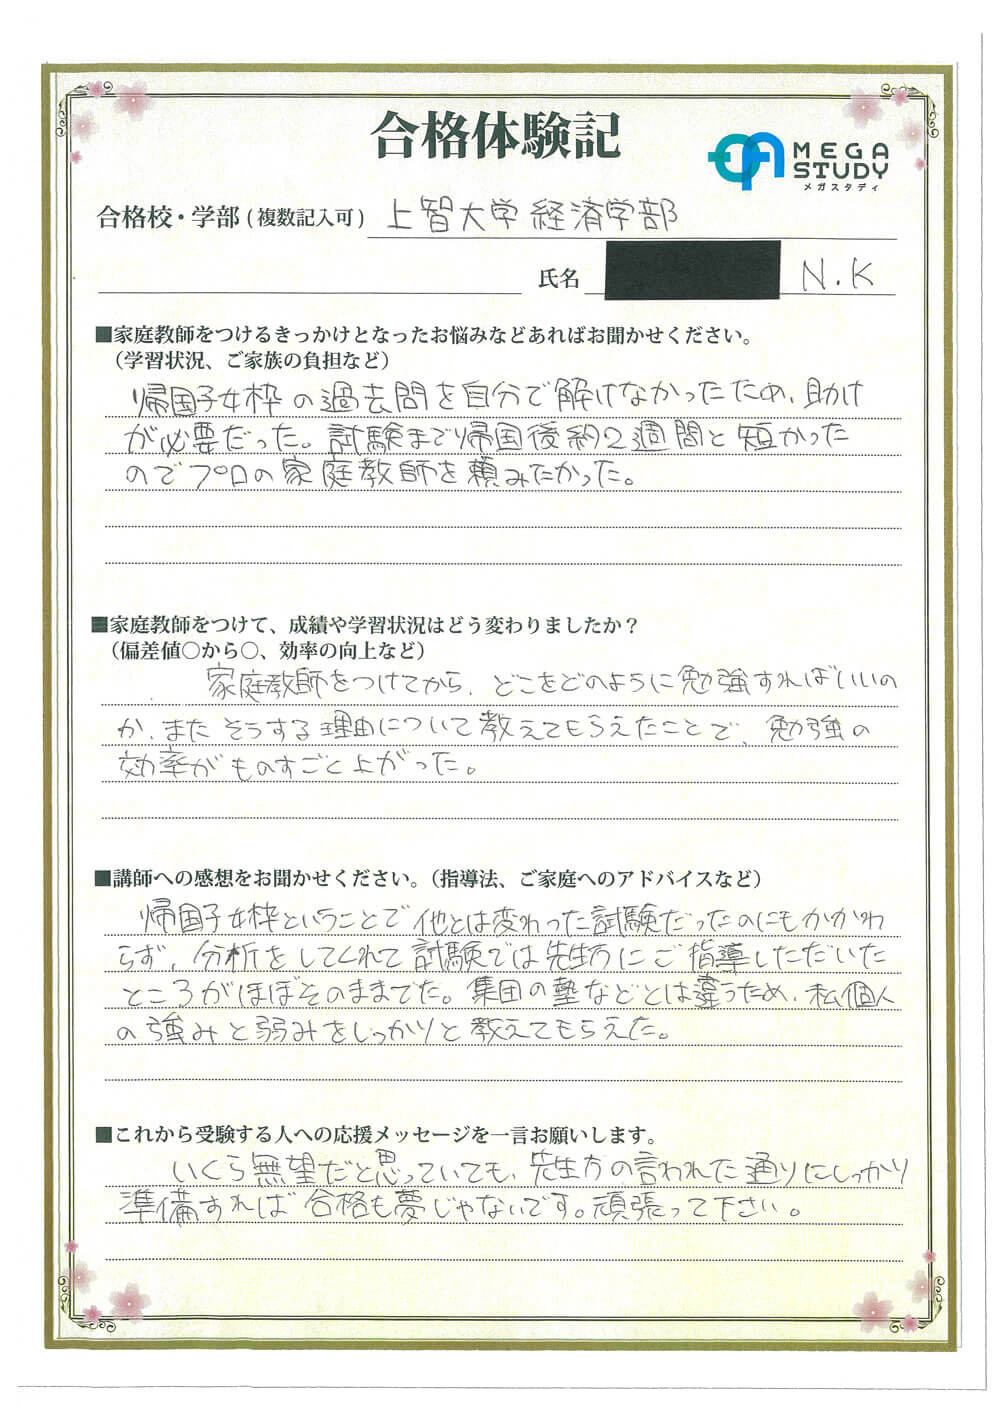 合格体験記
MEGA
STUDY
メガスタディ
合格校・学部(複数記入可) 上智大学 経済学部
氏名 N.K
■家庭教師をつけるきっかけとなったお悩みなどあればお聞かせください。
(学習状況、ご家族の負担など)
帰国子女枠の過去問を自分で解けなかったため、助け
が必要だった。試験まで帰国後約2週間と短かった
のでプロの家庭教師を頼みたかった。
■家庭教師をつけて、成績や学習状況はどう変わりましたか?
(偏差値○から○、効率の向上など)
家庭教師をつけてから、どこをどのように勉強すればいいの
か、また そうする理由について教えてもらえたことで、勉強の
効率がものすごく上がった。
■講師への感想をお聞かせください。(指導法、ご家庭へのアドバイスなど)
帰国子女枠ということで他とは変わった試験だったのにもかかわ
らず、分析をしてくれて試験では先生方にご指導しただいた
ところがほぼそのままでた。集団の塾などとは違うため、私個人
の強みと弱みをしっかりと教えてもらえた。
■これから受験する人への応援メッセージを一言お願いします。
いくら無望だと思っていても、先生方の言われた通りにしっかり
準備すれば合格も夢じゃないです。頑張って下さい。